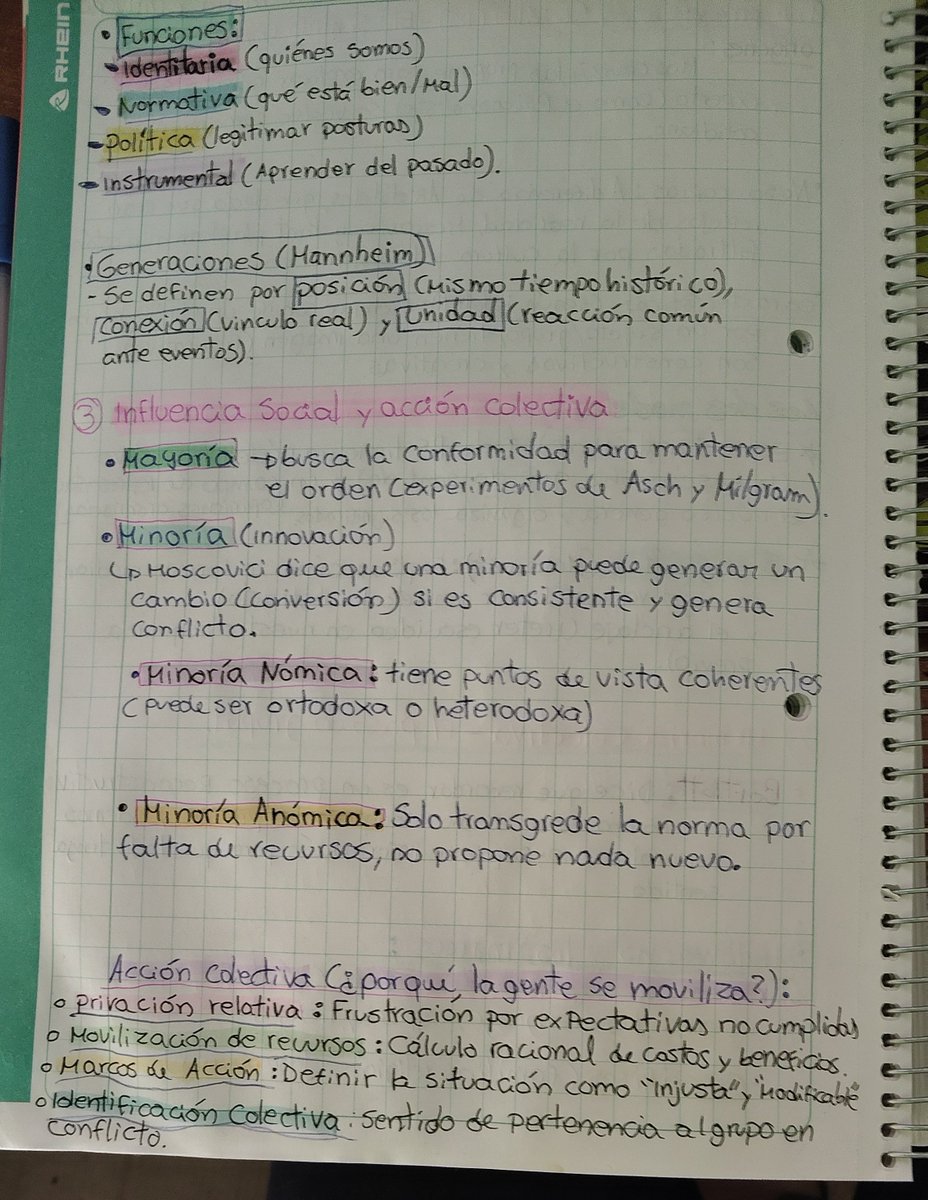 RHEIN
• Funciones:
- Identitaria (quiénes somos)
- Normativa (qué está bien/Mal)
- política (legitimar posturas)
- instrumental (Aprender del pasado).
• Generaciones (Mannheim)
- Se definen por posición (Mismo tiempo histórico),
conexión (vinculo real) y Unidad (reacción común
ante eventos).
③ Influencia Social y acción colectiva
• Mayoría → busca la conformidad para mantener
el orden (experimentos de Asch y Milgram).
• Minoría (innovación)
↳ Moscovici dice que una minoría puede generar un
cambio (conversión) si es consistente y genera
conflicto.
• Minoría Nómica: tiene puntos de vista coherentes
(puede ser ortodoxa o heterodoxa)
• Minoría Anómica: Solo transgrede la norma por
falta de recursos, no propone nada nuevo.
Acción colectiva (¿porqué, la gente se moviliza?):
○ privación relativa: Frustración por expectativas no cumplidas
○ Movilización de recursos: Cálculo racional de costos y beneficios.
○ Marcos de Acción: Definir la situación como "injusta" y "Modificable"
○ Identificación Colectiva: sentido de pertenencia al grupo en
conflicto.